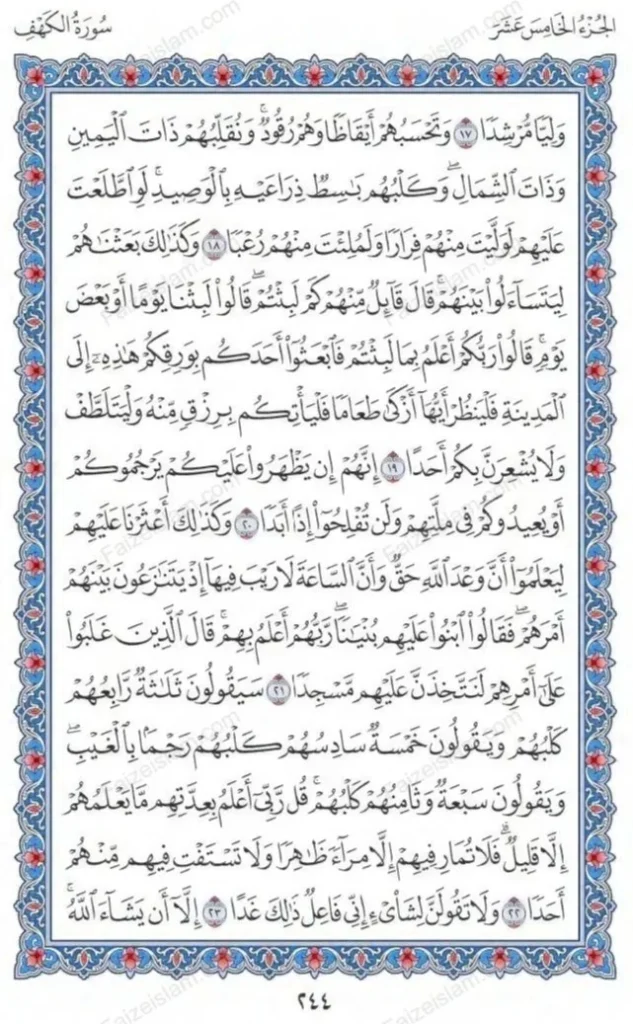 الجُزْءُ الخَامِسَ عَشَرَ
سُورَةُ الكَهْفِ
وَلِيًّا مُّرْشِدًا ١٧ وَتَحْسَبُهُمْ أَيْقَاظًا وَهُمْ رُقُودٌ ۚ وَنُقَلِّبُهُمْ ذَاتَ الْيَمِينِ
وَذَاتَ الشِّمَالِ ۖ وَكَلْبُهُم بَاسِطٌ ذِرَاعَيْهِ بِالْوَصِيدِ ۚ لَوِ اطَّلَعْتَ
عَلَيْهِمْ لَوَلَّيْتَ مِنْهُمْ فِرَارًا وَلَمُلِئْتَ مِنْهُمْ رُعْبًا ١٨ وَكَذَٰلِكَ بَعَثْنَاهُمْ
لِيَتَسَاءَلُوا بَيْنَهُمْ ۚ قَالَ قَائِلٌ مِّنْهُمْ كَمْ لَبِثْتُمْ ۖ قَالُوا لَبِثْنَا يَوْمًا أَوْ بَعْضَ
يَوْمٍ ۚ قَالُوا رَبُّكُمْ أَعْلَمُ بِمَا لَبِثْتُمْ فَابْعَثُوا أَحَدَكُم بِوَرِقِكُمْ هَٰذِهِ إِلَى
الْمَدِينَةِ فَلْيَنظُرْ أَيُّهَا أَزْكَىٰ طَعَامًا فَلْيَأْتِكُم بِرِزْقٍ مِّنْهُ وَلْيَتَلَطَّفْ
وَلَا يُشْعِرَنَّ بِكُمْ أَحَدًا ١٩ إِنَّهُمْ إِن يَظْهَرُوا عَلَيْكُمْ يَرْجُمُوكُمْ
أَوْ يُعِيدُوكُمْ فِي مِلَّتِهِمْ وَلَن تُفْلِحُوا إِذًا أَبَدًا ٢٠ وَكَذَٰلِكَ أَعْثَرْنَا عَلَيْهِمْ
لِيَعْلَمُوا أَنَّ وَعْدَ اللَّهِ حَقٌّ وَأَنَّ السَّاعَةَ لَا رَيْبَ فِيهَا إِذْ يَتَنَازَعُونَ بَيْنَهُمْ
أَمْرَهُمْ ۖ فَقَالُوا ابْنُوا عَلَيْهِم بُنْيَانًا ۖ رَّبُّهُمْ أَعْلَمُ بِهِمْ ۚ قَالَ الَّذِينَ غَلَبُوا
عَلَىٰ أَمْرِهِمْ لَنَتَّخِذَنَّ عَلَيْهِم مَّسْجِدًا ٢١ سَيَقُولُونَ ثَلَاثَةٌ رَّابِعُهُمْ
كَلْبُهُمْ وَيَقُولُونَ خَمْسَةٌ سَادِسُهُمْ كَلْبُهُمْ رَجْمًا بِالْغَيْبِ ۖ
وَيَقُولُونَ سَبْعَةٌ وَثَامِنُهُمْ كَلْبُهُمْ ۚ قُل رَّبِّي أَعْلَمُ بِعِدَّتِهِم مَّا يَعْلَمُهُمْ
إِلَّا قَلِيلٌ ۗ فَلَا تُمَارِ فِيهِمْ إِلَّا مِرَاءً ظَاهِرًا وَلَا تَسْتَفْتِ فِيهِم مِّنْهُمْ
أَحَدًا ٢٢ وَلَا تَقُولَنَّ لِشَا۟يْءٍ إِنِّي فَاعِلٌ ذَٰلِكَ غَدًا ٢٣ إِلَّا أَن يَشَاءَ اللَّهُ ۚ
٢٤٤
Faizeislam.com